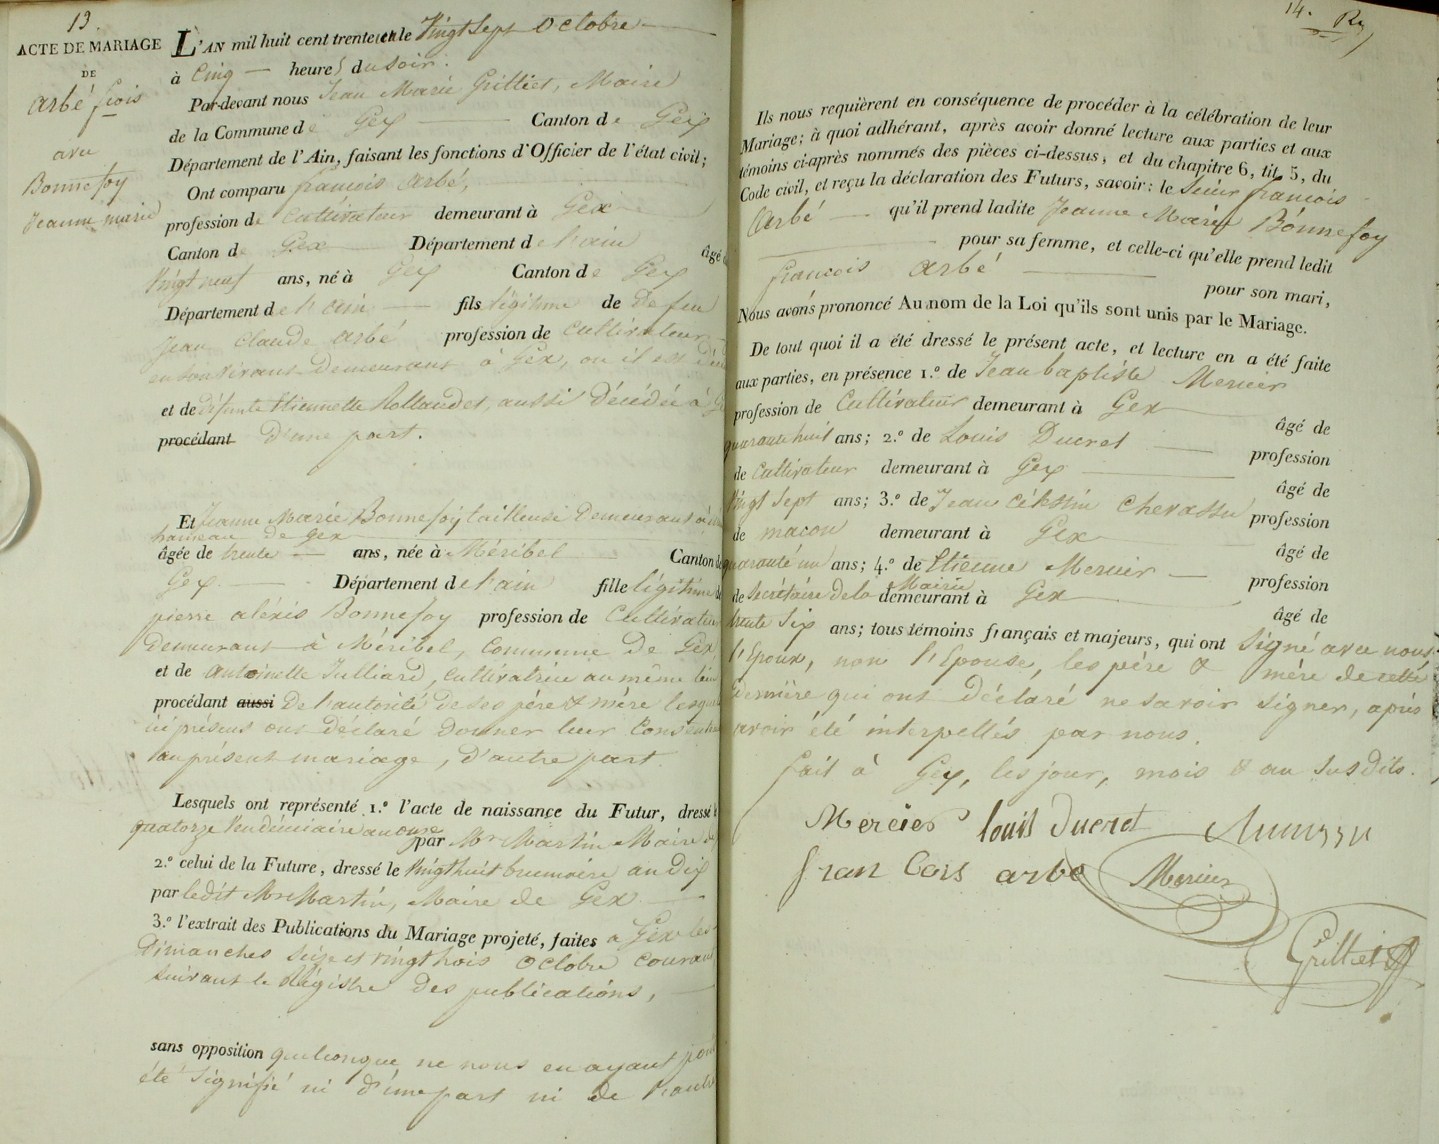 13
ACTE DE MARIAGE
DE
Arbé fçois
avec
Bonnefoy
Jeanne marie
L'AN mil huit cent trente le Vingt Sept Octobre
à Cinq heures du Soir.
Par-devant nous Jean Marie Grilliet, Maire
de la Commune de Gex Canton de Gex
Département de l'Ain, faisant les fonctions d'Officier de l'état civil;
Ont comparu françois Arbé,
profession de Cultivateur demeurant à Gex
Canton de Gex Département de l'ain âgé de
Vingt neuf ans, né à Gex Canton de Gex
Département de l'ain fils légitime de de feu
Jean Claude Arbé profession de Cultivateur
en son vivant demeurant à Gex, ou il est
et de défunte Etiennette Rollandet, aussi décédée à
procédant d'une part.
Et Jeanne Marie Bonnefoy tailleuse demeurant à
hameau de Gex
âgée de trente ans, née à Méribel Canton de
Gex Département de l'ain fille légitime de
pierre aléxis Bonnefoy profession de Cultivateur
demeurant à Méribel, Commune de Gex
et de Antoinette Julliard, Cultivatrice au même lieu
procédant aussi De l'autorité de ses père & mère lesquels
ici présens ont déclaré donner leur Consentement
au présent mariage, d'autre part.
Lesquels ont représenté 1.° l'acte de naissance du Futur, dressé le
quatorze Vendémiaire an onze par Mr Martin Maire de
2.° celui de la Future, dressé le Vingt huit brumaire an dix
par ledit Mr Martin, Maire de Gex
3.° l'extrait des Publications du Mariage projeté, faites à Gex les
Dimanches Seize et Vingt trois Octobre Courant
suivant le Régistre des publications,
sans opposition quelconque ne nous en ayant point
été signifié ni d'une part ni de l'autre
14. Ry
Ils nous requièrent en conséquence de procéder à la célébration de leur
Mariage; à quoi adhérant, après avoir donné lecture aux parties et aux
témoins ci-après nommés des pièces ci-dessus, et du chapitre 6, tit. 5, du
Code civil, et reçu la déclaration des Futurs, savoir: le Sieur françois
Arbé qu'il prend ladite Jeanne Marie Bonnefoy
pour sa femme, et celle-ci qu'elle prend ledit
françois Arbé pour son mari,
Nous avons prononcé Au nom de la Loi qu'ils sont unis par le Mariage.
De tout quoi il a été dressé le présent acte, et lecture en a été faite
aux parties, en présence 1.° de Jean baptiste Mercier
profession de Cultivateur demeurant à Gex âgé de
quarante huit ans; 2.° de Louis Ducret profession
de Cultivateur demeurant à Gex âgé de
Vingt Sept ans; 3.° de Jean Célestin Chevassu profession
de maçon demeurant à Gex âgé de
quarante un ans; 4.° de Etienne Mercier profession
de Secrétaire de la Mairie demeurant à Gex âgé de
trente Six ans; tous témoins français et majeurs, qui ont Signé avec nous
l'Epoux, non l'Epouse, les père & mère de cette
dernière qui ont déclaré ne savoir signer, après
avoir été interpellés par nous.
fait à Gex, les jour, mois & an susdits.
Mercier louis ducret
fran Cois arbe Mercier
Grilliet